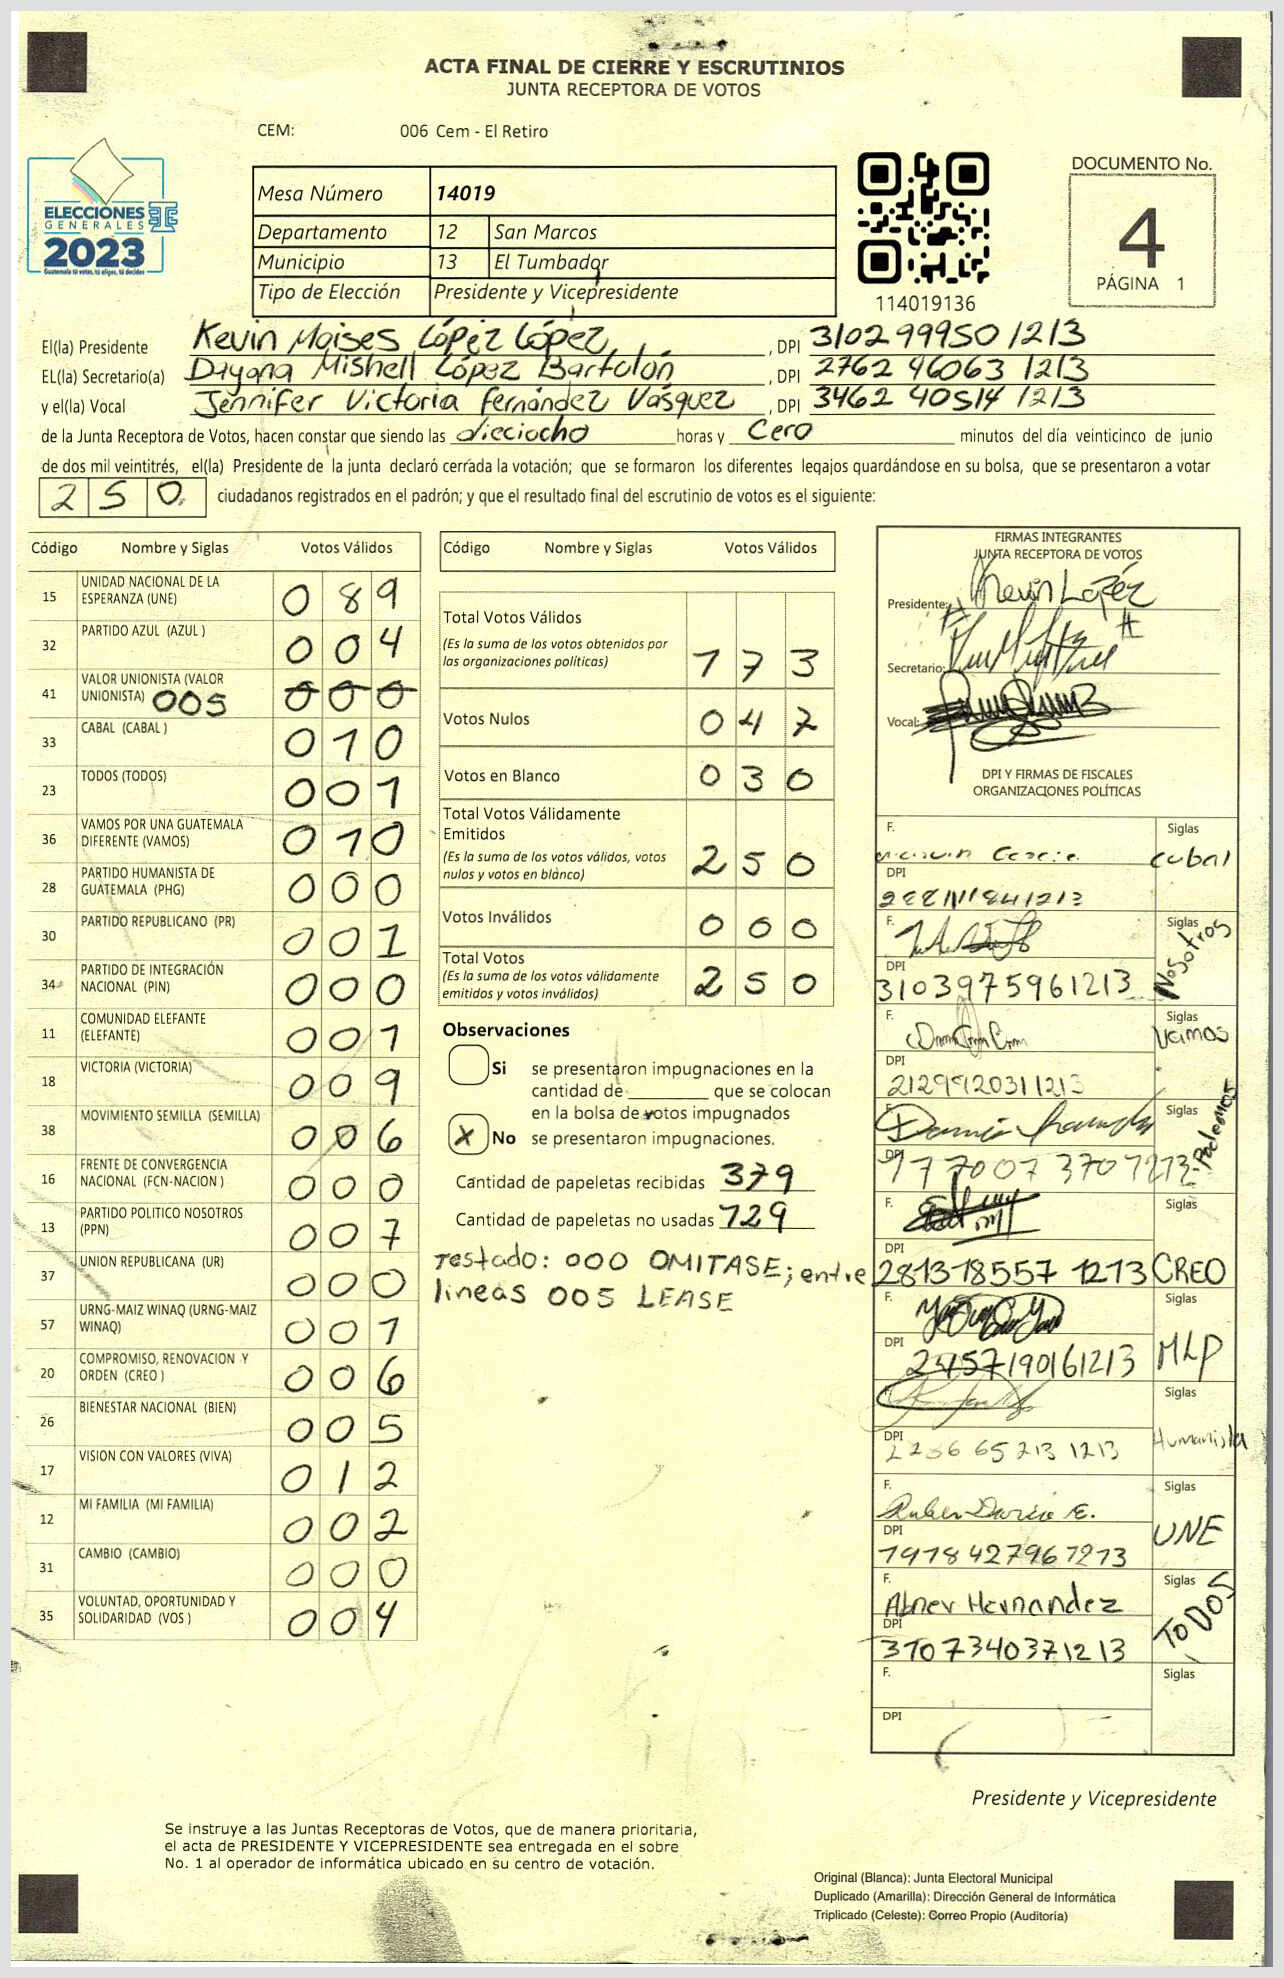 ACTA FINAL DE CIERRE Y ESCRUTINIOS
JUNTA RECEPTORA DE VOTOS
CEM: 006 Cem - El Retiro
ELECCIONES
GENERALES
2023
Guatemala tú votas, tú eliges, tú decides
Mesa Número 14019
Departamento 12 San Marcos
Municipio 13 El Tumbador
Tipo de Elección Presidente y Vicepresidente
114019136
DOCUMENTO No.
4
PÁGINA 1
El(la) Presidente Kevin Moises López López, DPI 3102 99950 1213
EL(la) Secretario(a) Dayana Mishell López Bartolón, DPI 2762 46063 1213
y el(la) Vocal Jennifer Victoria Fernández Vásquez, DPI 3462 40514 1213
de la Junta Receptora de Votos, hacen constar que siendo las dieciocho horas y Cero minutos del día veinticinco de junio
de dos mil veintitrés, el(la) Presidente de la junta declaró cerrada la votación; que se formaron los diferentes legajos quardándose en su bolsa, que se presentaron a votar
250 ciudadanos registrados en el padrón; y que el resultado final del escrutinio de votos es el siguiente:
Código Nombre y Siglas Votos Válidos
15 UNIDAD NACIONAL DE LA ESPERANZA (UNE) 089
32 PARTIDO AZUL (AZUL ) 004
41 VALOR UNIONISTA (VALOR UNIONISTA) 005 000
33 CABAL (CABAL ) 010
23 TODOS (TODOS) 001
36 VAMOS POR UNA GUATEMALA DIFERENTE (VAMOS) 010
28 PARTIDO HUMANISTA DE GUATEMALA (PHG) 000
30 PARTIDO REPUBLICANO (PR) 001
34 PARTIDO DE INTEGRACIÓN NACIONAL (PIN) 000
11 COMUNIDAD ELEFANTE (ELEFANTE) 001
18 VICTORIA (VICTORIA) 009
38 MOVIMIENTO SEMILLA (SEMILLA) 006
16 FRENTE DE CONVERGENCIA NACIONAL (FCN-NACION ) 000
13 PARTIDO POLITICO NOSOTROS (PPN) 007
37 UNION REPUBLICANA (UR) 000
57 URNG-MAIZ WINAQ (URNG-MAIZ WINAQ) 001
20 COMPROMISO, RENOVACION Y ORDEN (CREO ) 006
26 BIENESTAR NACIONAL (BIEN) 005
17 VISION CON VALORES (VIVA) 012
12 MI FAMILIA (MI FAMILIA) 002
31 CAMBIO (CAMBIO) 000
35 VOLUNTAD, OPORTUNIDAD Y SOLIDARIDAD (VOS ) 004
Código Nombre y Siglas Votos Válidos
Total Votos Válidos
(Es la suma de los votos obtenidos por
las organizaciones políticas) 173
Votos Nulos 047
Votos en Blanco 030
Total Votos Válidamente
Emitidos
(Es la suma de los votos válidos, votos
nulos y votos en blanco) 250
Votos Inválidos 000
Total Votos
(Es la suma de los votos válidamente
emitidos y votos inválidos) 250
Observaciones
Si se presentaron impugnaciones en la
cantidad de ________ que se colocan
en la bolsa de votos impugnados
X No se presentaron impugnaciones.
Cantidad de papeletas recibidas 379
Cantidad de papeletas no usadas 129
Testado: 000 OMITASE; entre
lineas 005 LEASE
FIRMAS INTEGRANTES
JUNTA RECEPTORA DE VOTOS
Presidente: Kevin López
Secretario:
Vocal:
DPI Y FIRMAS DE FISCALES
ORGANIZACIONES POLÍTICAS
F. Siglas Cabal
DPI
F. Siglas Nosotros
DPI 3103975961213
F. Siglas Vamos
DPI 2129920311213
F. Siglas Podemos
DPI 1777007370 1213
F. Siglas CREO
DPI 281318557 1213
F. Siglas MLP
DPI 2457190161213
F. Siglas Humanista
DPI 2236 65213 1213
F. Ruben Dario E. Siglas UNE
DPI 1918427961213
F. Abner Hernandez Siglas TODOS
DPI 3107340371213
F. Siglas
DPI
Presidente y Vicepresidente
Se instruye a las Juntas Receptoras de Votos, que de manera prioritaria,
el acta de PRESIDENTE Y VICEPRESIDENTE sea entregada en el sobre
No. 1 al operador de informática ubicado en su centro de votación.
Original (Blanca): Junta Electoral Municipal
Duplicado (Amarilla): Dirección General de Informática
Triplicado (Celeste): Correo Propio (Auditoría)